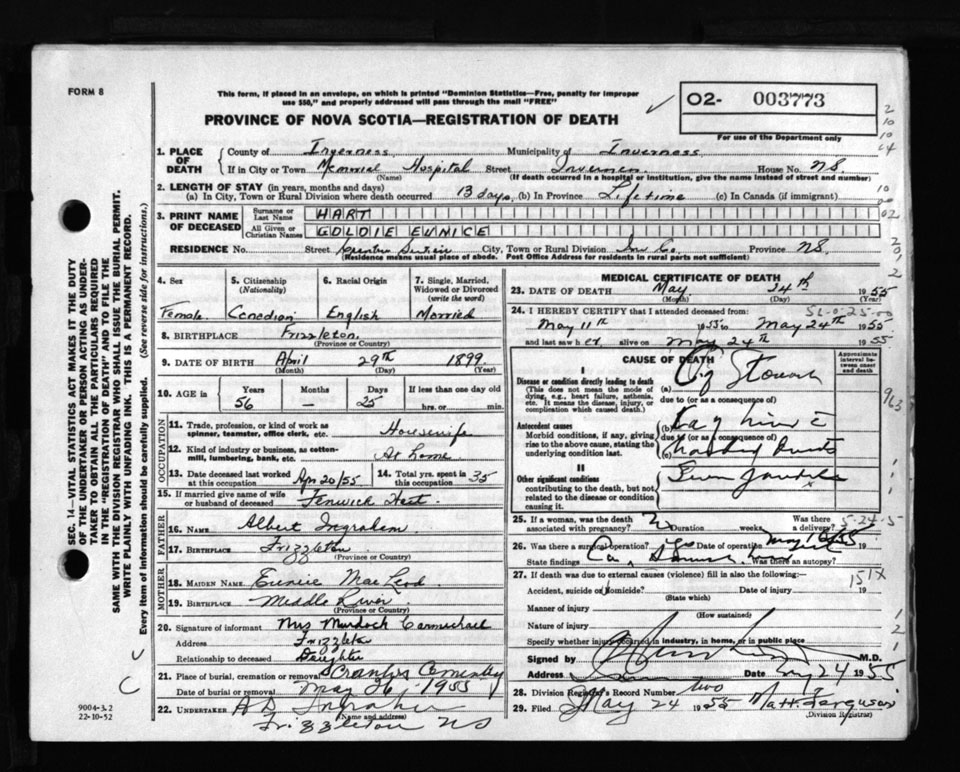 FORM 8
This form, if placed in an envelope, on which is printed "Dominion Statistics—Free, penalty for improper
use $50," and properly addressed will pass through the mail "FREE"
PROVINCE OF NOVA SCOTIA—REGISTRATION OF DEATH
02- 003773
For use of the Department only
SEC. 14—VITAL STATISTICS ACT MAKES IT THE DUTY
OF THE UNDERTAKER OR PERSON ACTING AS UNDER-
TAKER TO OBTAIN ALL THE PARTICULARS REQUIRED
IN THE "REGISTRATION OF DEATH" AND TO FILE THE
SAME WITH THE DIVISION REGISTRAR WHO SHALL ISSUE THE BURIAL PERMIT.
WRITE PLAINLY WITH UNFADING INK. THIS IS A PERMANENT RECORD.
Every item of Information should be carefully supplied. (See reverse side for instructions.)
1. PLACE OF DEATH
County of Inverness Municipality of Inverness
If in City or Town Memorial Hospital Street Inverness House No. NS.
(Name) (If death occurred in a hospital or institution, give the name instead of street and number)
2. LENGTH OF STAY (in years, months and days)
(a) In City, Town or Rural Division where death occurred 13 days (b) In Province Lifetime (c) In Canada (if immigrant)
3. PRINT NAME OF DECEASED
Surname or Last Name HART
All Given or Christian Names GOLDIE EUNICE
RESIDENCE No. Street City, Town or Rural Division Inv Co. Province NS.
(Residence means usual place of abode. Post Office Address for residents in rural parts not sufficient)
4. Sex
Female
5. Citizenship (Nationality)
Canadian
6. Racial Origin
English
7. Single, Married, Widowed or Divorced (write the word)
Married
8. BIRTHPLACE Frizzleton
(Province or Country)
9. DATE OF BIRTH April 29th 1899
(Month) (Day) (Year)
10. AGE in Years Months Days If less than one day old
56 — 25 hrs. or min.
OCCUPATION
11. Trade, profession, or kind of work as spinner, teamster, office clerk, etc. Housewife
12. Kind of industry or business, as cotton-mill, lumbering, bank, etc. At home
13. Date deceased last worked at this occupation Apr 20/55
14. Total yrs. spent in this occupation 35
15. If married give name of wife or husband of deceased Fenwick Hart
FATHER
16. NAME Albert Ingraham
17. BIRTHPLACE Frizzleton
(Province or Country)
MOTHER
18. MAIDEN NAME Eunice MacLeod
19. BIRTHPLACE Middle River
(Province or Country)
20. Signature of informant Mrs Murdock Carmichael
Address Frizzleton
Relationship to deceased Daughter
21. Place of burial, cremation or removal Cemetery
Date of burial or removal May 26, 1955
22. UNDERTAKER A D Ingraham
(Name and address)
Frizzleton NS
9004-3.2
22-10-52
MEDICAL CERTIFICATE OF DEATH
23. DATE OF DEATH May 24th 1955
(Month) (Day) (Year)
24. I HEREBY CERTIFY that I attended deceased from:
May 11th 1955 to May 24th 1955
and last saw her alive on May 24th 1955
CAUSE OF DEATH
Approximate interval between onset and death
I
Disease or condition directly leading to death
(This does not mean the mode of dying, e.g., heart failure, asthenia, etc. It means the disease, injury, or complication which caused death.)
(a) Ca of Stomach
due to (or as a consequence of)
Antecedent causes
Morbid conditions, if any, giving rise to the above cause, stating the underlying condition last.
(b)
due to (or as a consequence of)
(c)
II
Other significant conditions
contributing to the death, but not related to the disease or condition causing it.
25. If a woman, was the death associated with pregnancy? Duration weeks. Was there a delivery?
26. Was there a surgical operation? yes Date of operation May 1955
State findings Was there an autopsy?
27. If death was due to external causes (violence) fill in also the following:—
Accident, suicide or homicide? Date of injury 19
(State which)
Manner of injury
(How sustained)
Nature of injury
Specify whether injury occurred in industry, in home, or in public place
Signed by M.D.
Address Date May 24 1955
28. Division Registrar's Record Number two
29. Filed May 24 1955 Matt. Ferguson
(Division Registrar)